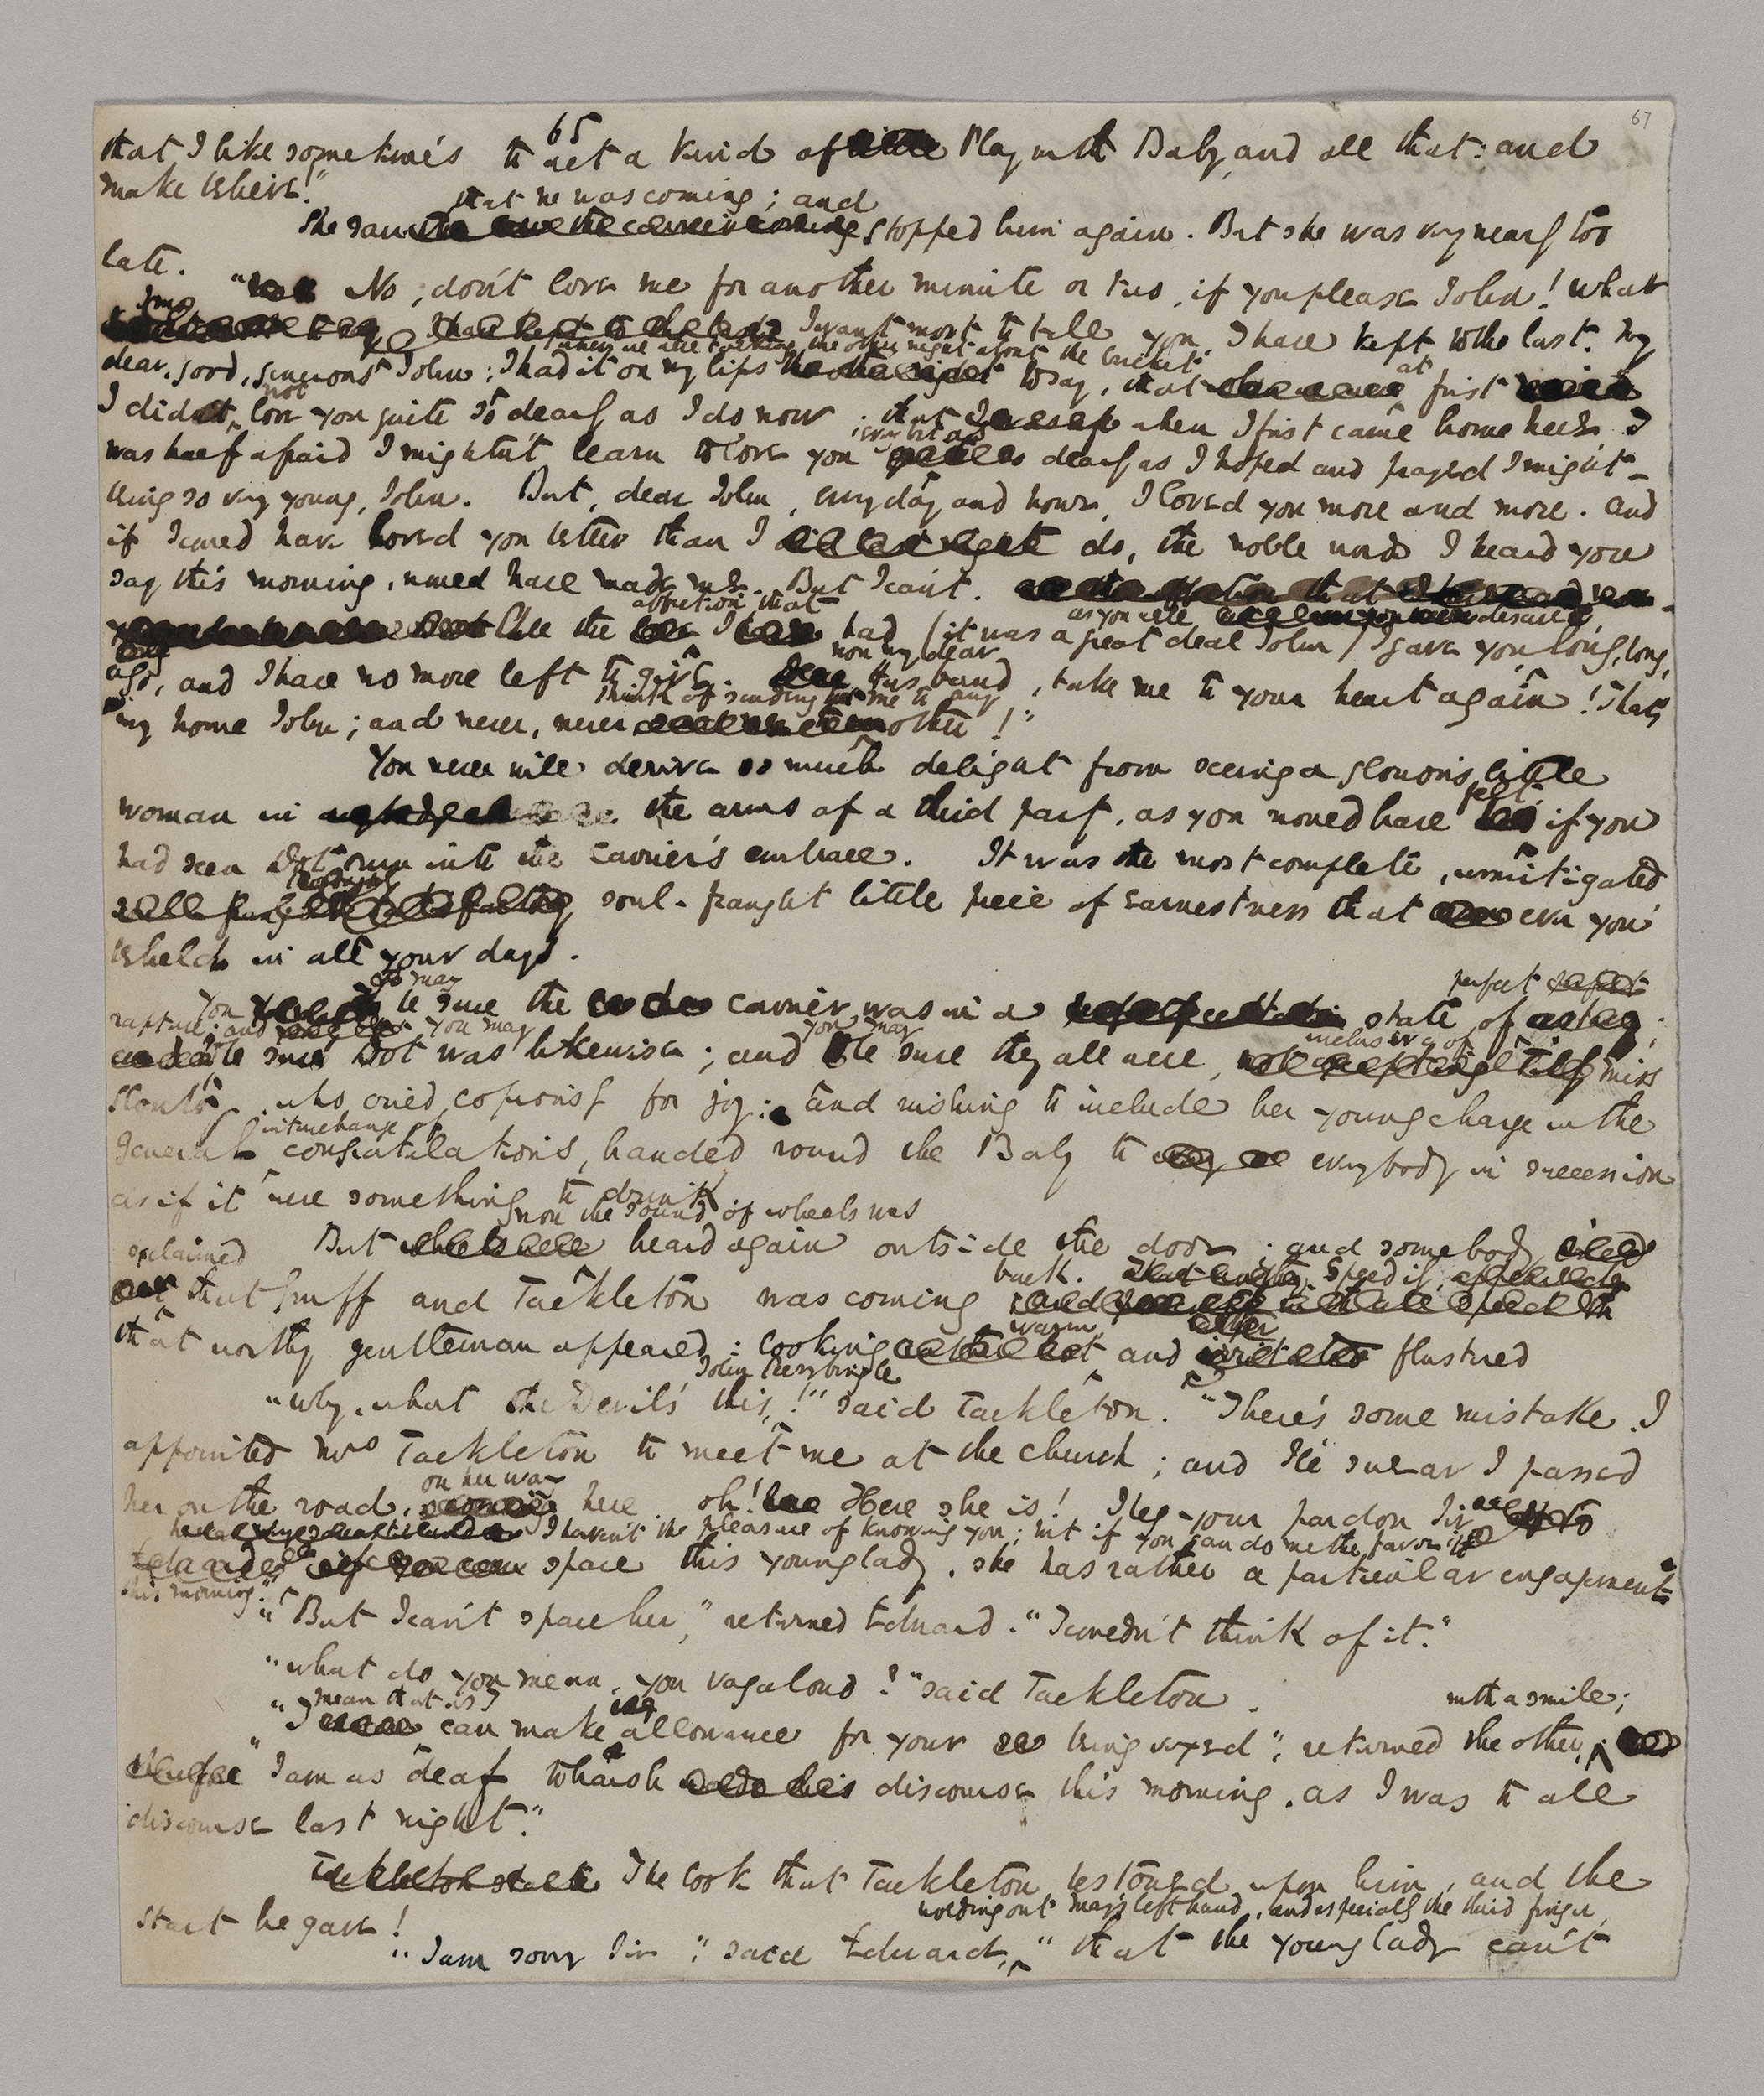 67
65
that I like sometimes to act a kind of Play with Baby, and all that: and
make believe!"
that he was coming; and
She saw stopped him again. But she was very nearly too
late.
"No, don't love me for another minute or two, if you please John! What
I want most to tell you, I have kept to the last. My
when we were talking the other night about the Cricket
dear, good, generous John; I had it on my lips to say, that at first
not
I did love you quite so dearly as I do now; that when I first came home here, I
every bit as
was half afraid I mightn't learn to love you dearly as I hoped and prayed I might—
being so very young, John. But, dear John, every day and hour, I loved you more and more. And
if I could have loved you better than I do, the noble words I heard you
say this morning, would have made me. But I can't.
affection that
as you well deserve,
All the I had (it was a great deal John) I gave you, long, long,
now my dear
ago, and I have no more left to give. Husband, take me to your heart again! That's
think of sending me to any
my home John; and never, never other!"
You never will derive so much delight from seeing a glorious little
woman in the arms of a third party, as you would have felt if you
had seen Dot run into the Carrier's embrace. It was the most complete, unmitigated
soul-fraught little piece of earnestness that ever you
beheld in all your days.
perfect
You may be sure the carrier was in a state of
rapture; and you may
you may
inclusive of
be sure Dot was likewise; and be sure they all were, Miss
Slowboy, who cried copiously for joy: and wishing to include her young charge in the
interchange of
general congratulations, handed round the Baby to everybody in succession
as if it were something to drink
now the sound of wheels was
But heard again outside the door; and somebody
exclaimed
that Gruff and Tackleton was coming back. Speedily
that worthy gentleman appeared: looking warm and flustered
John Peerybingle
"Why, what the Devil's this, !" said Tackleton. "There's some mistake. I
appointed Mrs Tackleton to meet me at the church; and I'll swear I passed
on her way
her on the road, here. Oh! Here she is! I beg your pardon Sir
I haven't the pleasure of knowing you; but if you can do me the favor to
spare this young lady, she has rather a particular engagement
this morning."
"But I can't spare her," returned Edward. "I couldn't think of it."
"What do you mean, you vagabond?" said Tackleton.
mean that as
with a smile;
"I can make allowance for your being vexed", returned the other,
"I am as deaf to harsh discourse this morning, as I was to all
discourse last night."
The look that Tackleton bestowed upon him, and the
start he gave!
holding out May's left hand, and especially the third finger,
"I am sorry Sir," said Edward, "that the young lady can't